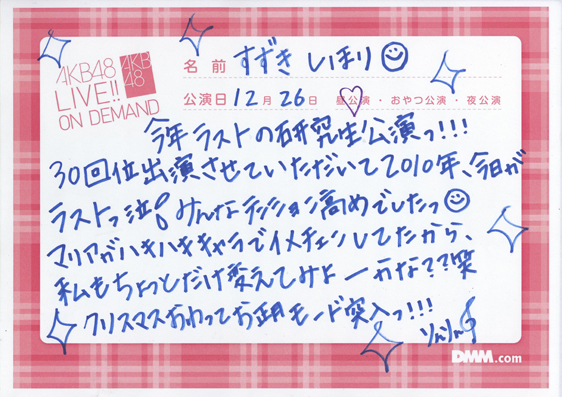 AKB48
LIVE!!
ON DEMAND
AKB
48
名前 すずき しほり
公演日 12月 26日 昼公演・おやつ公演・夜公演
今年ラストの研究生公演っ!!!
30回位出演させていただいて2010年、今日が
ラストっ泣 みんなテンション高めでしたっ
マリアがハキハキキャラでイメチェンしてたから、
私もちょっとだけ変えてみよーかな??笑
クリスマスおわってお正月モード突入っ!!!
DMM.com